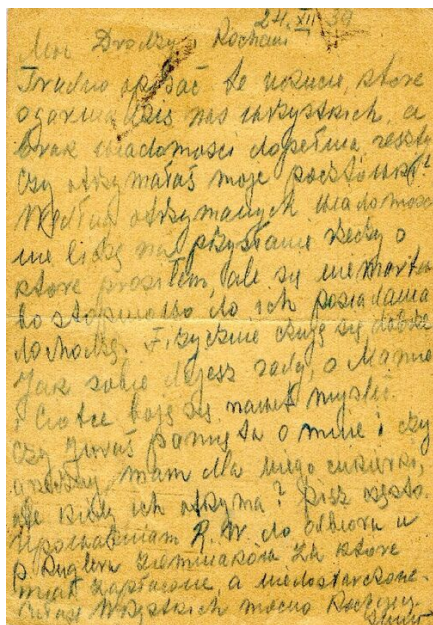 24.XII 39
Moi Drodzy i Kochani
Trudno opisać te uczucie, które
ogarnia dziś nas wszystkich, a
brak wiadomości dopełnia reszty
Czy otrzymałaś moje pocztówki?
Według otrzymanych wiadomości
nie liczę na przysłanie rzeczy o
które prosiłem, ale się nie martw
bo stopniowo do ich posiadania
dochodzę. Fizycznie czuję się dobrze
Jak sobie dajesz radę, o Mamie
i Ciotce boję się nawet myśleć.
Czy Juraś pamięta o mnie i czy
grzeczny, mam dla niego cukierki,
ale kiedy ich otrzyma? Pisz często.
Upoważniam P. W. do odbioru u
p. Kuglera ziemniaków za które
miał zapłacone, a niedostarczone.
wszystkich mocno